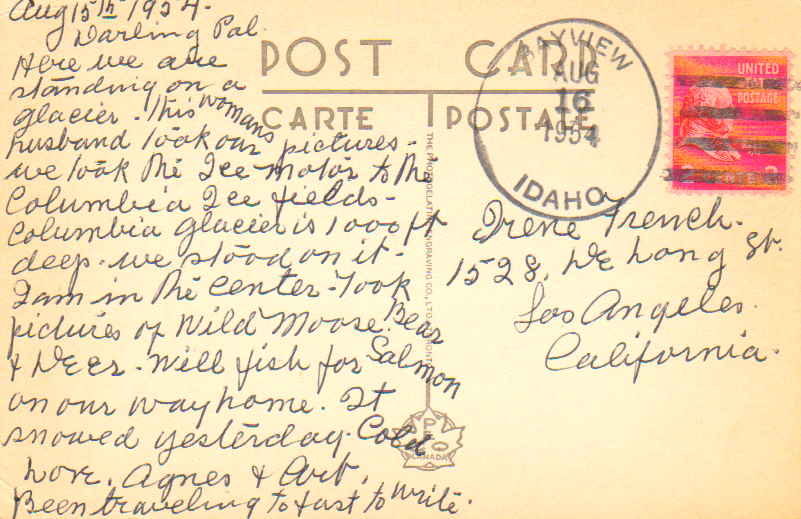 Aug 15th 1954.
Darling Pal.
Here we are
standing on a
glacier. This womans
husband took our pictures-
we took the Ice motor to the
Columbia Ice fields-
Columbia glacier is 1000 ft
deep. we stood on it-
I am in the center- Took
pictures of Wild Moose. Bear
& Deer. Will fish for Salmon
on our way home. It
snowed yesterday. Cold
Love, Agnes & Art,
Been traveling to fast to write.
POST CARD
CARTE POSTALE
THE PHOTOGELATINE ENGRAVING CO., LTD. TORONTO
CANADA
BAYVIEW
AUG
16
1954
IDAHO
UNITED
POSTAGE
Irene French.
1528, De Long St.
Los Angeles.
California.